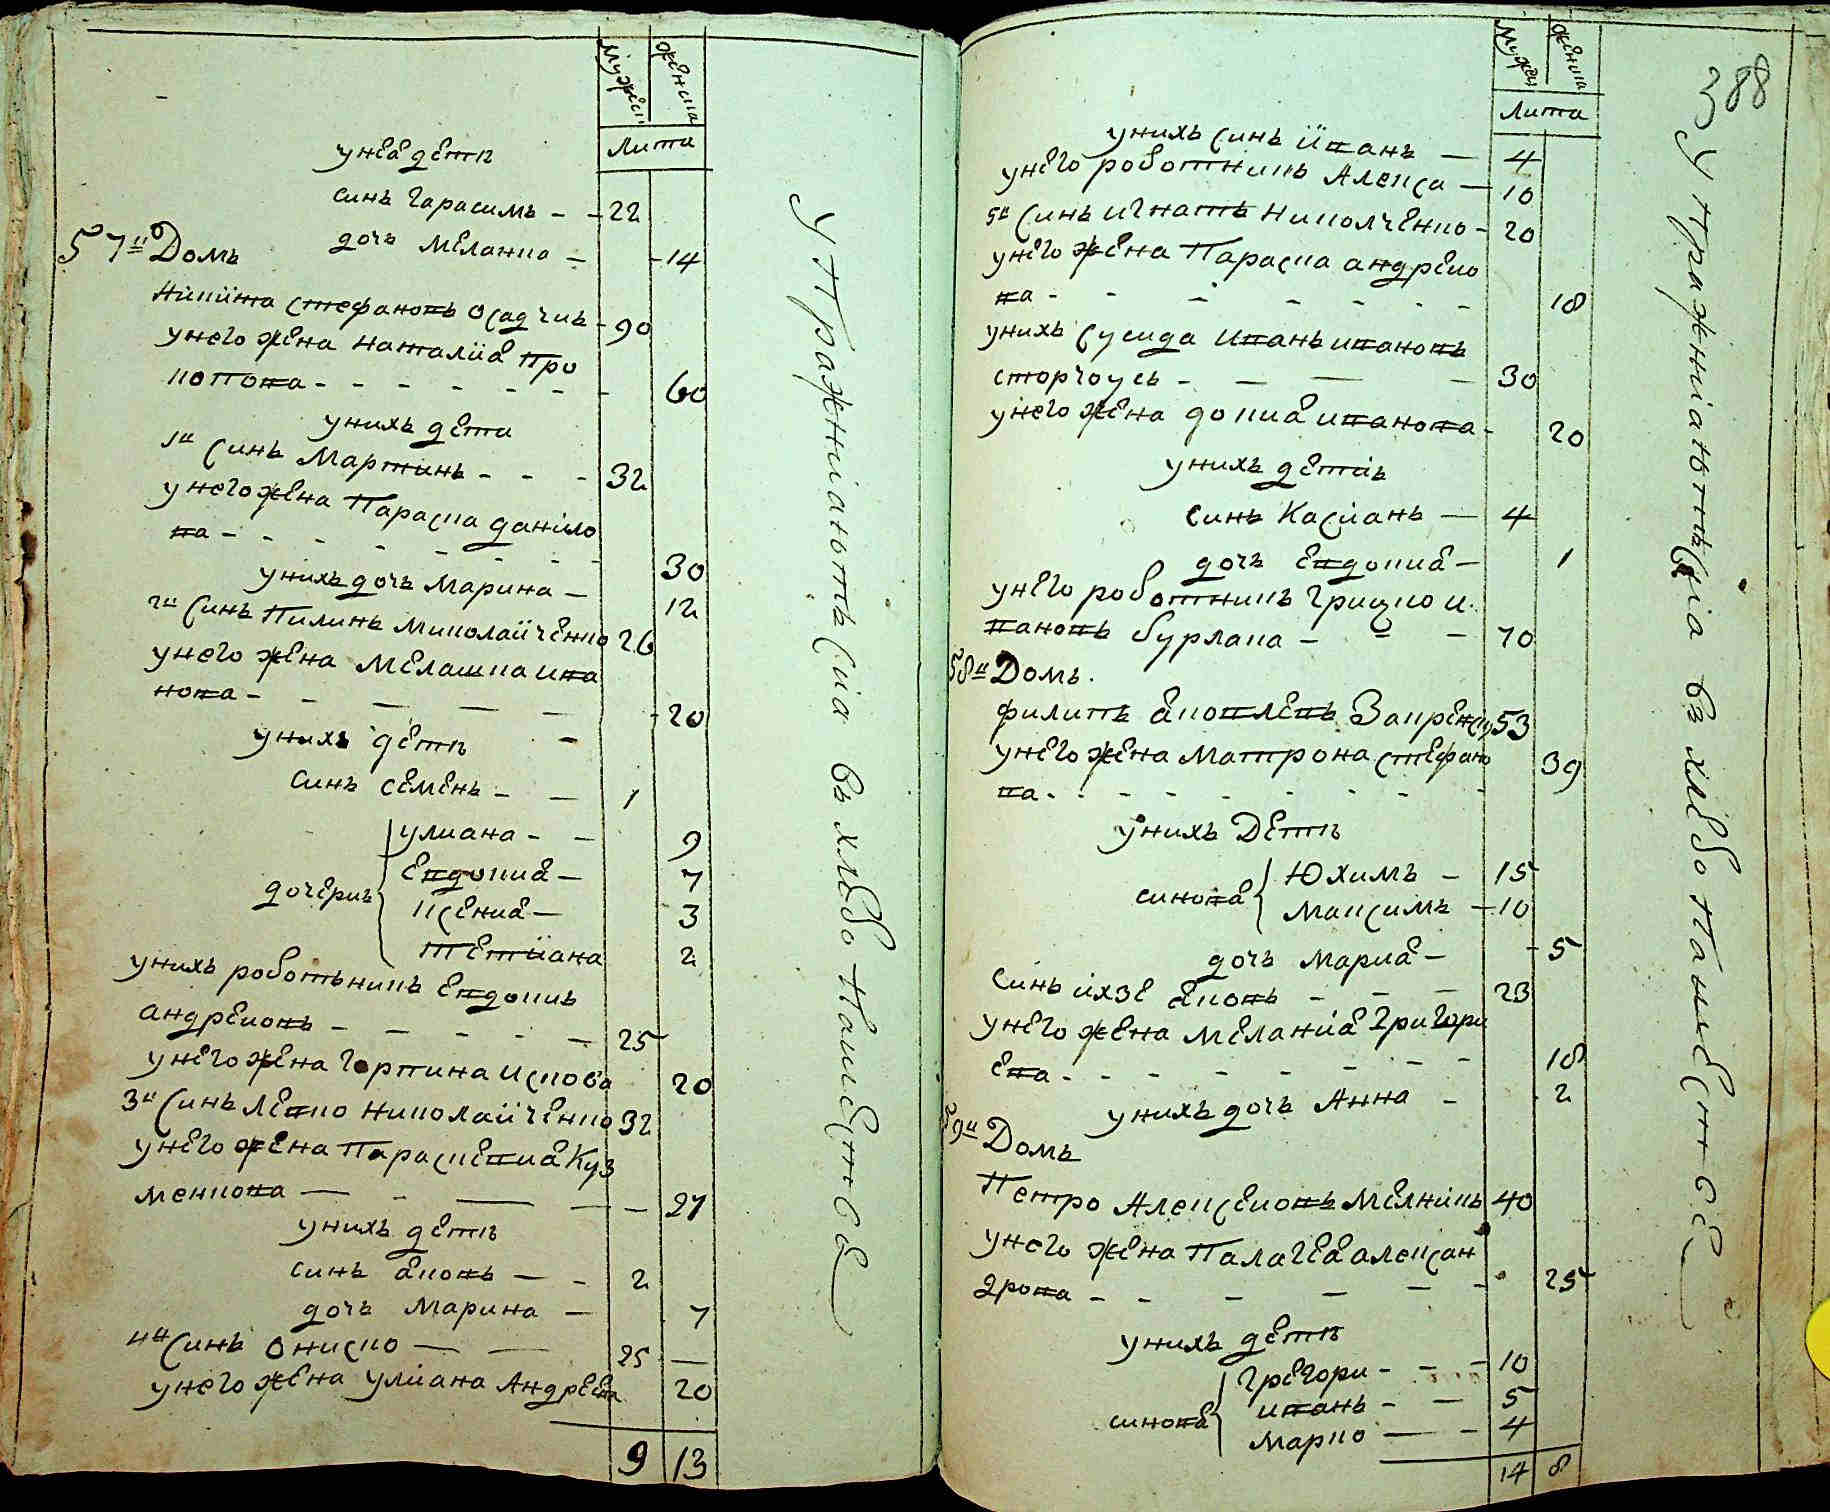 Мужск:
женска
Лита
унеѣ дети
синь Гарасимъ - - 22
дочь Меланка - - 14
57й Домъ
Никита стефановъ Осадчий - 90
унего жена наталиѣ про
копова - - - - - - - 60
унихъ дети
1й Синь Мартинь - - - 32
унего жена Параска данило
ва - - - - - - - 30
унихъ дочь Марина - 12
2й Синь Пилипь Миколайченко 26
унего жена Мелашка ива
нова - - - - - 20
унихъ дети -
синь семень - - 1
дочерив
улиана - - 9
Евдокиѣ - 7
ксениѣ - 3
тетиана 2
унихъ роботьникъ Евдокии
андреювь - - - - - 25
унего жена Горпина 20
3й Синь Левко Николайченко 32
унего жена Параскевиѣ Куз
менкова - - - - - 27
унихъ дети
синь ѣковь - - 2
дочь Марина - 7
4й Синь Ониско - - 25 -
унего жена Улиана Андреева 20
9 13
Упражніаютьсіа въ хлебопашестве
Мужск
женска
388
Лита
унихъ синь Иванъ - 4
унего роботникъ Алекса - 10
5й Синь игнать Николченко - 20
унего жена Параска андрею
ва - - - - - - 18
унихъ Сусида иванъ ивановъ
сторчоусь - - - - 30
унего жена докиѣ иванова - 20
унихъ детиь
синь Касиань - 4
дочь Евдокиѣ - 1
унего роботникъ Грицко и
вановъ бурлака - - - 70
58й Домъ.
филипъ ѣковлевъ Запренску 53
унего жена Матрона стефано
ва - - - - - - - 39
унихъ Дети
синовѣ
Юхимъ - 15
Максимъ - 10
дочь Мариѣ - - 5
Синь ихзе ѣковъ - - - 23
унего жена Меланиѣ Григори
ева - - - - - - - 18
унихъ дочь Анна - 2
59й Домъ
Петро Алексеювъ Мелникъ 40
унего жена Палагеѣ алексан
дрова - - - - - - 25
унихъ дети
синовѣ
Грегори - - - 10
иванъ - - 5
Марко - - 4
14 8
Упражніаютьсіа въ хлебопашестве